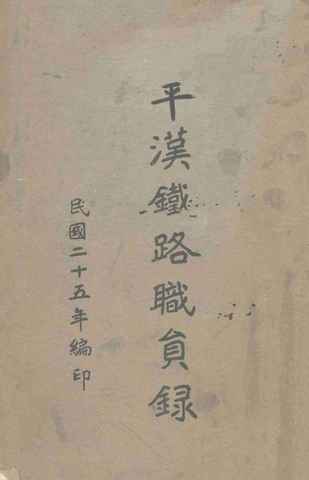 平漢鐵路職員録
民國二十五年編印